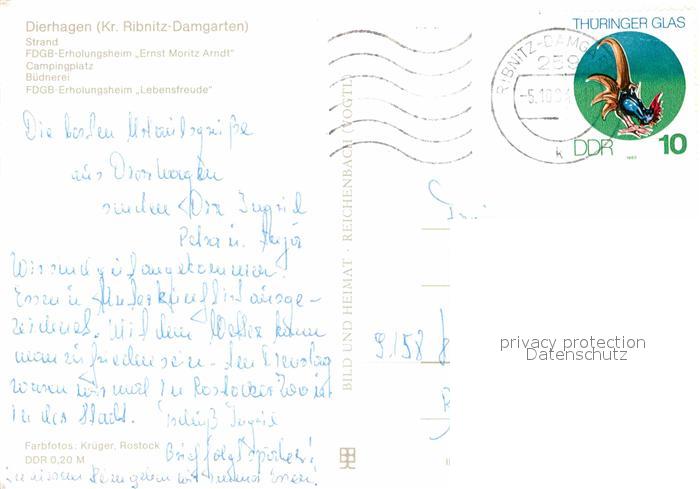 Dierhagen (Kr. Ribnitz-Damgarten)
Strand
FDGB-Erholungsheim „Ernst Moritz Arndt"
Campingplatz
Büdnerei
FDGB-Erholungsheim „Lebensfreude"
Die besten Urlaubsgrüße
aus Dierhagen
senden Dir Ingrid
Petra u.
Wir sind gut angekommen.
Essen u. Unterkunft ist ausge-
zeichnet. Mit dem Wetter kann
man zufrieden sein. Am Dienstag
waren wir mal in Rostocker Zoo u.
in der Stadt. Tschüß Ingrid
Brief folgt später!
Farbfotos: Krüger, Rostock
DDR 0,20 M
BILD UND HEIMAT · REICHENBACH (VOGTL)
RIBNITZ-DAMG
259
-5.10.84
k
THÜRINGER GLAS
DDR 10
1983
9158
privacy protection
Datenschutz